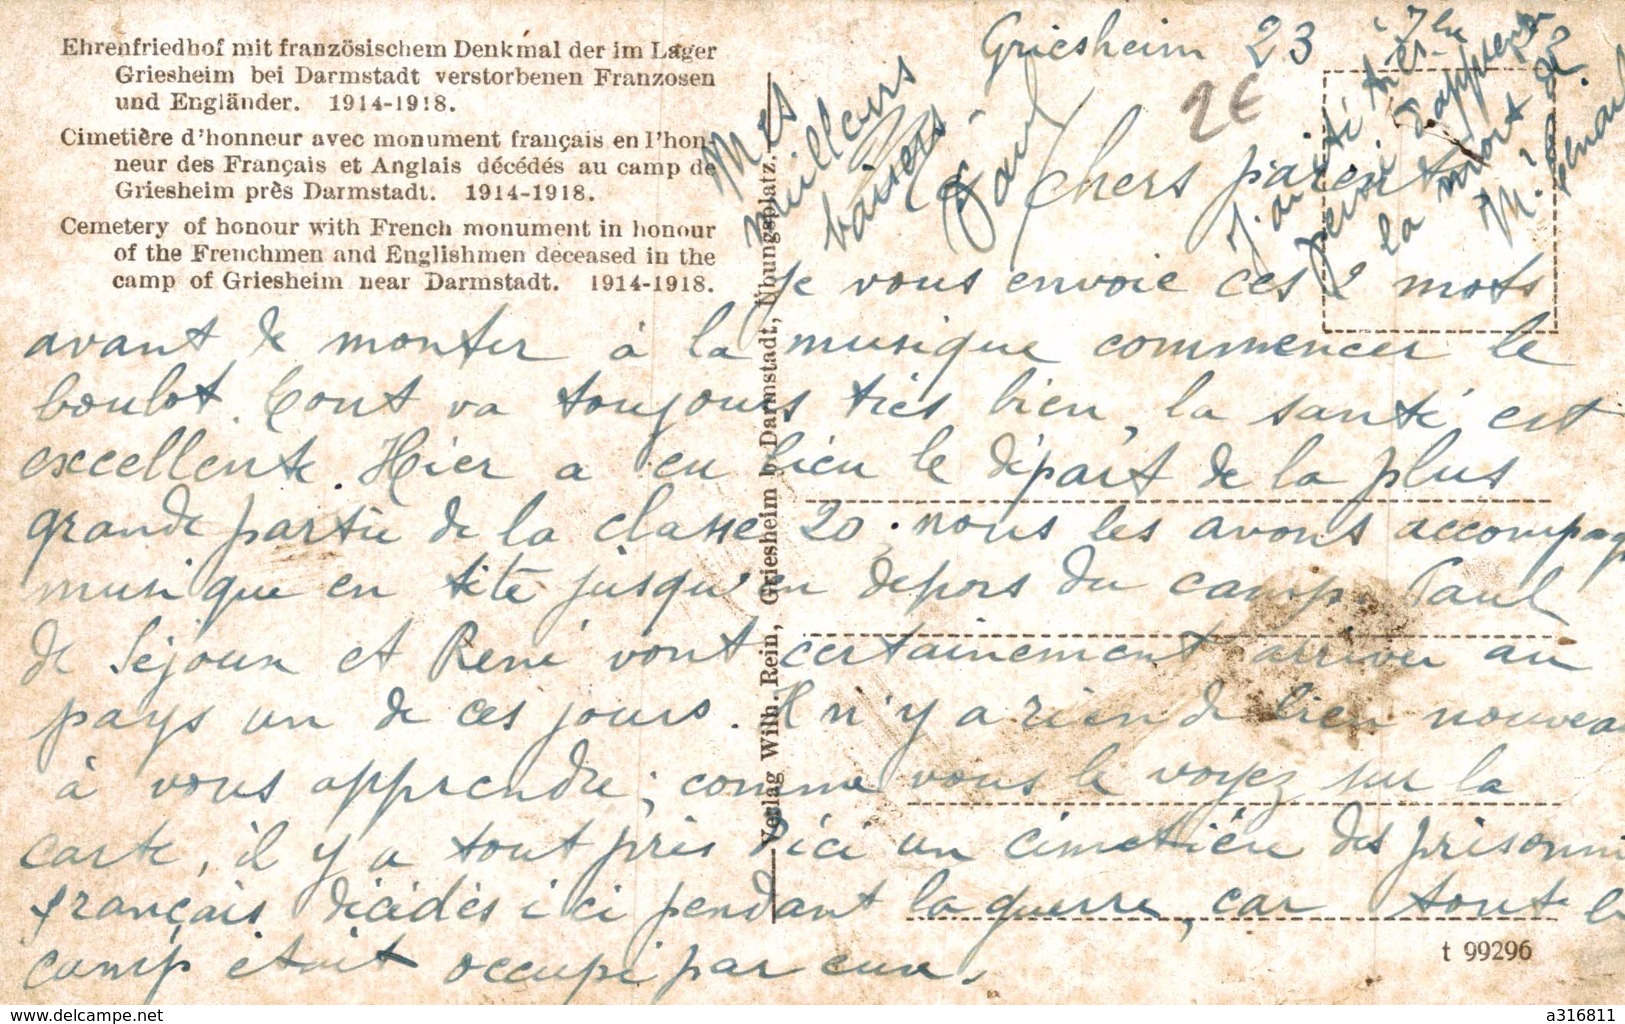 Ehrenfriedhof mit französischem Denkmal der im Lager
Griesheim bei Darmstadt verstorbenen Franzosen
und Engländer. 1914-1918.
Cimetière d'honneur avec monument français en l'hon-
neur des Français et Anglais décédés au camp de
Griesheim près Darmstadt. 1914-1918.
Cemetery of honour with French monument in honour
of the Frenchmen and Englishmen deceased in the
camp of Griesheim near Darmstadt. 1914-1918.
Verlag Wilh. Rein, Griesheim b. Darmstadt, Übungsplatz.
Griesheim 23
2€
chers parents
Je vous envoie ces 2 mots
avant de monter à la musique commencer le
boulot. Tout va toujours très bien, la santé est
excellente. Hier a eu lieu le départ de la plus
grande partie de la classe 20. nous les avons accompag
musique en tête jusqu'en dehors du camp. Paul
de Séjour et René vont certainement arriver au
pays un de ces jours. Il n'y a rien de bien nouveau
à vous apprendre; comme vous le voyez sur la
carte, il y a tout près d'ici un cimetière des prisonni
français décédés ici pendant la guerre, car tout le
camp était occupé par eux.
Mes
meilleurs
baisers
Paul
J'ai été très
peiné d'apprendre
la mort de
M.
t 99296
www.delcampe.net
a316811